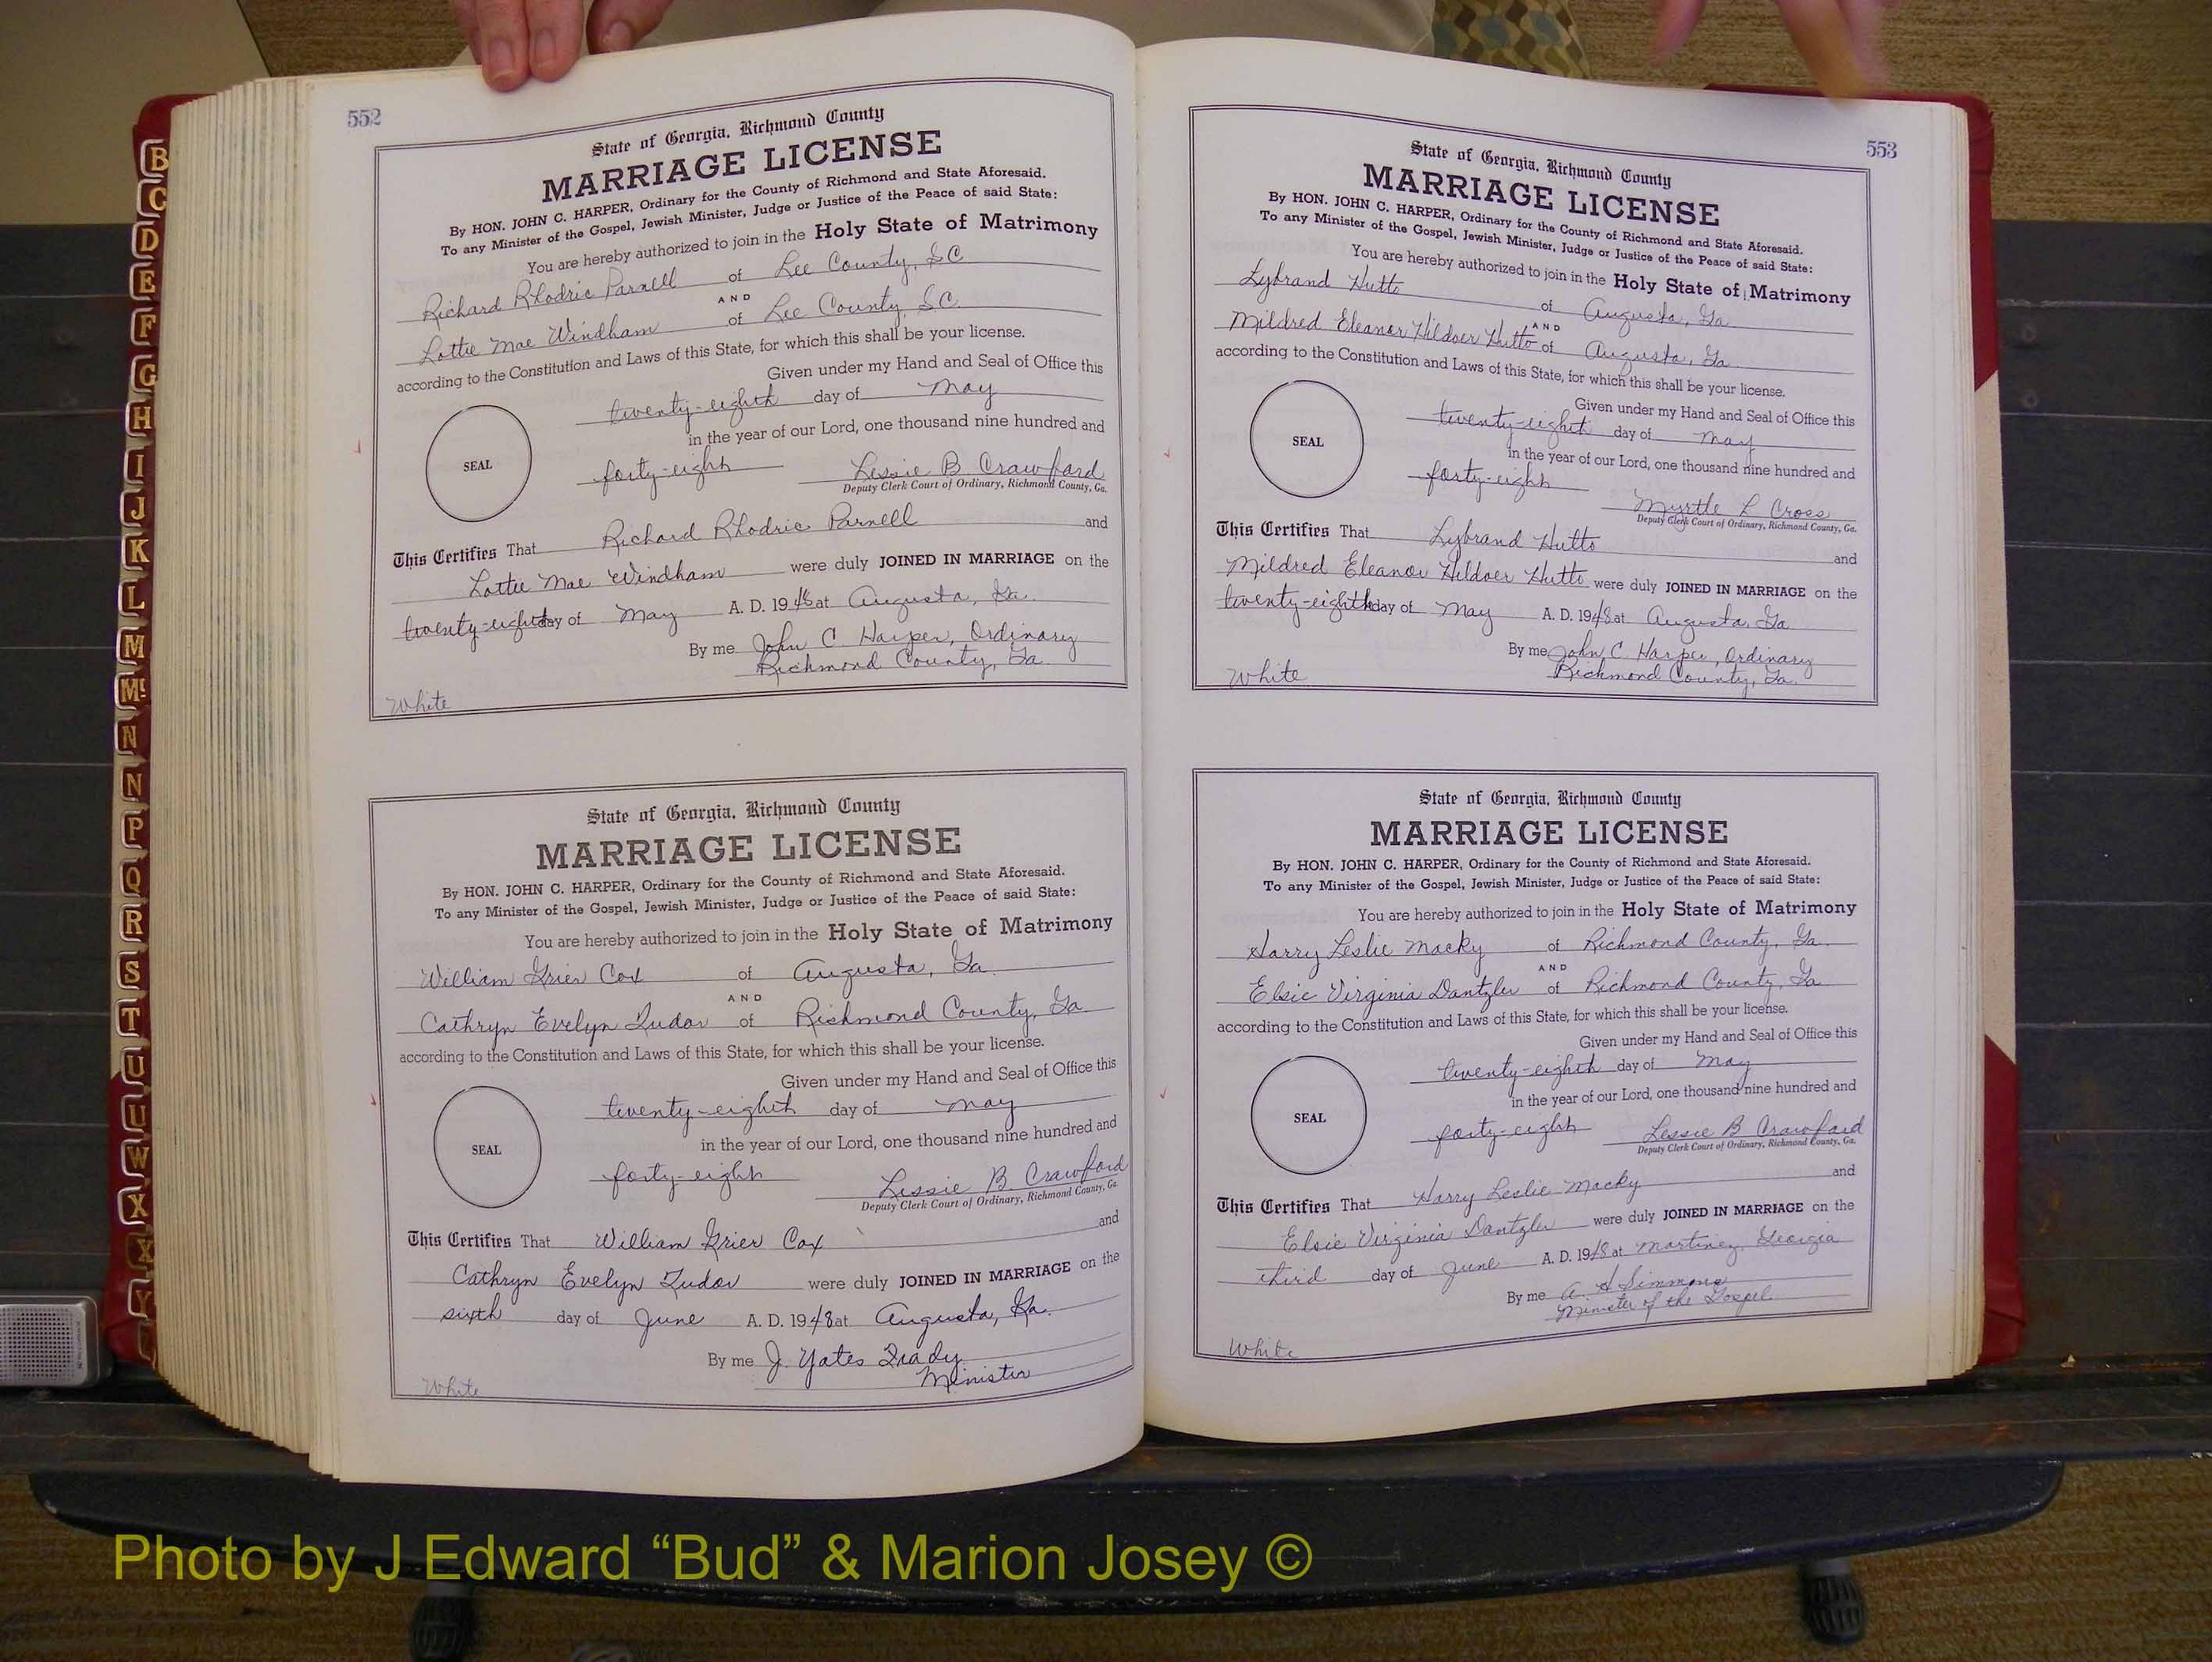 552
State of Georgia, Richmond County
MARRIAGE LICENSE
By HON. JOHN C. HARPER, Ordinary for the County of Richmond and State Aforesaid.
To any Minister of the Gospel, Jewish Minister, Judge or Justice of the Peace of said State:
You are hereby authorized to join in the Holy State of Matrimony
Richard Rhodric Parnell of Lee County, S C
AND
Lottie Mae Windham of Lee County, S C
according to the Constitution and Laws of this State, for which this shall be your license.
Given under my Hand and Seal of Office this
twenty-eighth day of May
in the year of our Lord, one thousand nine hundred and
SEAL
forty-eight Lessie B. Crawford
Deputy Clerk Court of Ordinary, Richmond County, Ga.
This Certifies That Richard Rhodric Parnell and
Lottie Mae Windham were duly JOINED IN MARRIAGE on the
twenty-eighth day of May A. D. 1948 at Augusta, Ga.
By me John C. Harper, Ordinary
Richmond County, Ga.
White
State of Georgia, Richmond County
MARRIAGE LICENSE
By HON. JOHN C. HARPER, Ordinary for the County of Richmond and State Aforesaid.
To any Minister of the Gospel, Jewish Minister, Judge or Justice of the Peace of said State:
You are hereby authorized to join in the Holy State of Matrimony
William Grier Cox of Augusta, Ga.
AND
Cathryn Evelyn Tudor of Richmond County, Ga
according to the Constitution and Laws of this State, for which this shall be your license.
Given under my Hand and Seal of Office this
twenty-eighth day of May
in the year of our Lord, one thousand nine hundred and
SEAL
forty-eight Lessie B. Crawford
Deputy Clerk Court of Ordinary, Richmond County, Ga.
This Certifies That William Grier Cox and
Cathryn Evelyn Tudor were duly JOINED IN MARRIAGE on the
sixth day of June A. D. 1948 at Augusta, Ga.
By me J. Yates
Minister
White
553
State of Georgia, Richmond County
MARRIAGE LICENSE
By HON. JOHN C. HARPER, Ordinary for the County of Richmond and State Aforesaid.
To any Minister of the Gospel, Jewish Minister, Judge or Justice of the Peace of said State:
You are hereby authorized to join in the Holy State of Matrimony
Lybrand Hutto of Augusta, Ga
AND
Mildred Eleanor Hutto of Augusta, Ga.
according to the Constitution and Laws of this State, for which this shall be your license.
Given under my Hand and Seal of Office this
twenty-eighth day of May
in the year of our Lord, one thousand nine hundred and
SEAL
forty-eight Myrtle L Cross
Deputy Clerk Court of Ordinary, Richmond County, Ga.
This Certifies That Lybrand Hutto and
Mildred Eleanor Hutto were duly JOINED IN MARRIAGE on the
twenty-eighth day of May A. D. 1948 at Augusta, Ga
By me John C. Harper, Ordinary
Richmond County, Ga.
White
State of Georgia, Richmond County
MARRIAGE LICENSE
By HON. JOHN C. HARPER, Ordinary for the County of Richmond and State Aforesaid.
To any Minister of the Gospel, Jewish Minister, Judge or Justice of the Peace of said State:
You are hereby authorized to join in the Holy State of Matrimony
Harry Leslie Macky of Richmond County, Ga.
AND
Elsie Virginia Dantzler of Richmond County, Ga
according to the Constitution and Laws of this State, for which this shall be your license.
Given under my Hand and Seal of Office this
twenty-eighth day of May
in the year of our Lord, one thousand nine hundred and
SEAL
forty-eight Lessie B Crawford
Deputy Clerk Court of Ordinary, Richmond County, Ga.
This Certifies That Harry Leslie Macky and
Elsie Virginia Dantzler were duly JOINED IN MARRIAGE on the
third day of June A. D. 1948 at Martinez, Georgia
By me A. H Simmons
Minister of the Gospel
White
B
C
D
E
F
G
H
I
J
K
L
M
Mc
N
N
P
Q
R
S
T
U
U
W
X
X
Y
Photo by J Edward “Bud” & Marion Josey ©